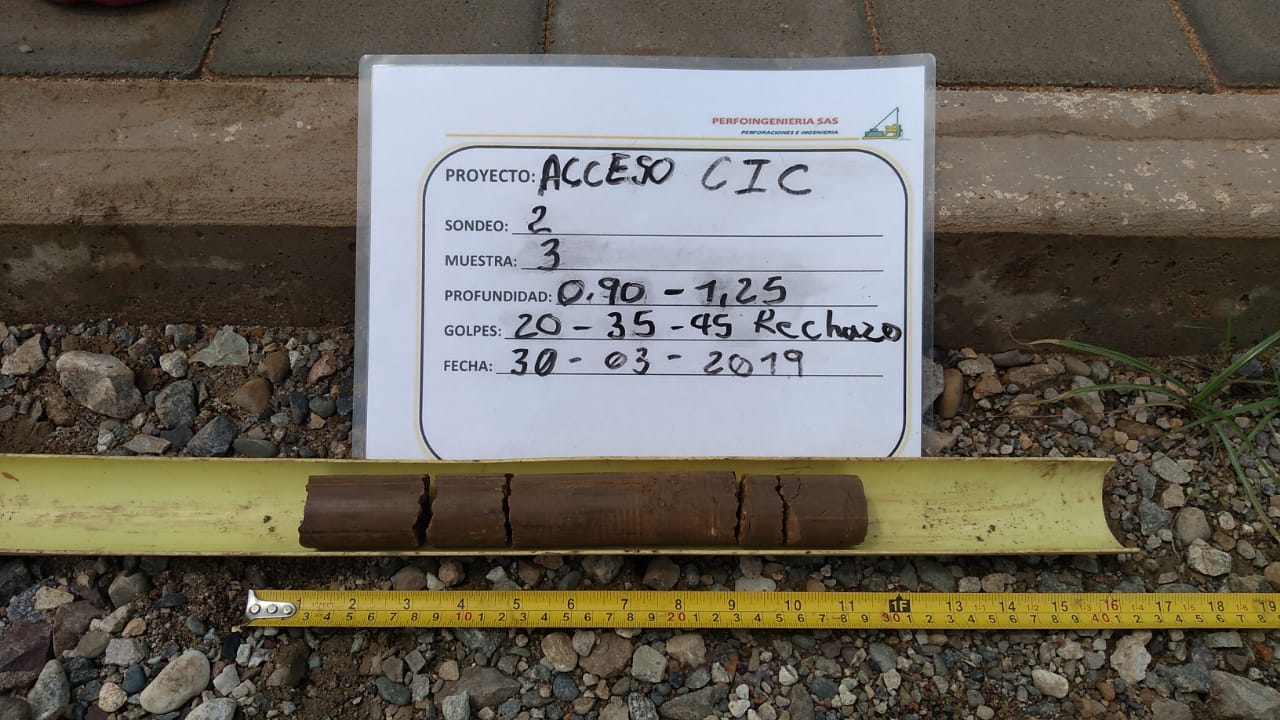 PERFOINGENIERIA SAS
PERFORACIONES E INGENIERIA
PROYECTO: ACCESO CIC
SONDEO: 2
MUESTRA: 3
PROFUNDIDAD: 0.90 - 1,25
GOLPES: 20 - 35 - 45 Rechazo
FECHA: 30 - 03 - 2019
1 2 3 4 5 6 7 8 9 10 11 1F 13 14 15 16 17 18 19
3 4 6 7 8 9 10 1 2 3 4 5 6 7 8 9 20 1 2 3 4 5 6 7 8 9 30 1 2 3 4 5 6 7 8 9 40 1 2 3 4 5 6 7 8